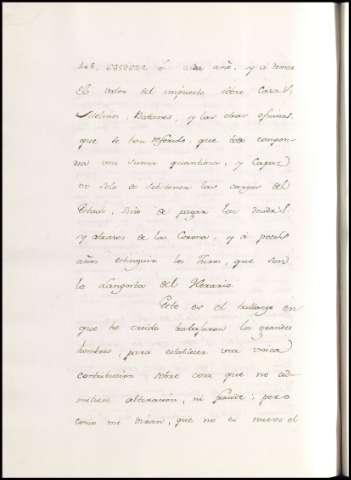 cada año, y à demas
El valor del impuesto sobre Casas,
Molinos, Batanes, y las otras oficinas,
que se han referido, que todo compon-
dra una suma quantiosa, y Capaz
no solo de sobstener las cargas del
Estado, sino de pagar las deudas,
y atrasos de la Corona, y à pocos
años extinguir los Juros, que son
la langosta del Herario.
Este es el hallazgo en
que he creido trabajaron los grandes
hombres, para establecer una unica
contribucion sobre cosa que no ad-
mitiese alteracion, ni fraude; pero
como me diran, que no es nuevo el